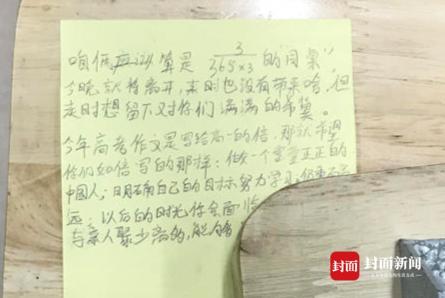 咱俩应该算是 3/365×3 的同桌"
今晚就替离开,来时也没有带来啥,但
走时想留下对你们满满的希冀。
今年高考作文是写给高一的信,那就希望
你们如信写的那样:做一个堂堂正正的
中国人;明确自己的目标努力学习,
远;以后的时光你会面临
与亲人聚少离多,能够
封面 封面新闻